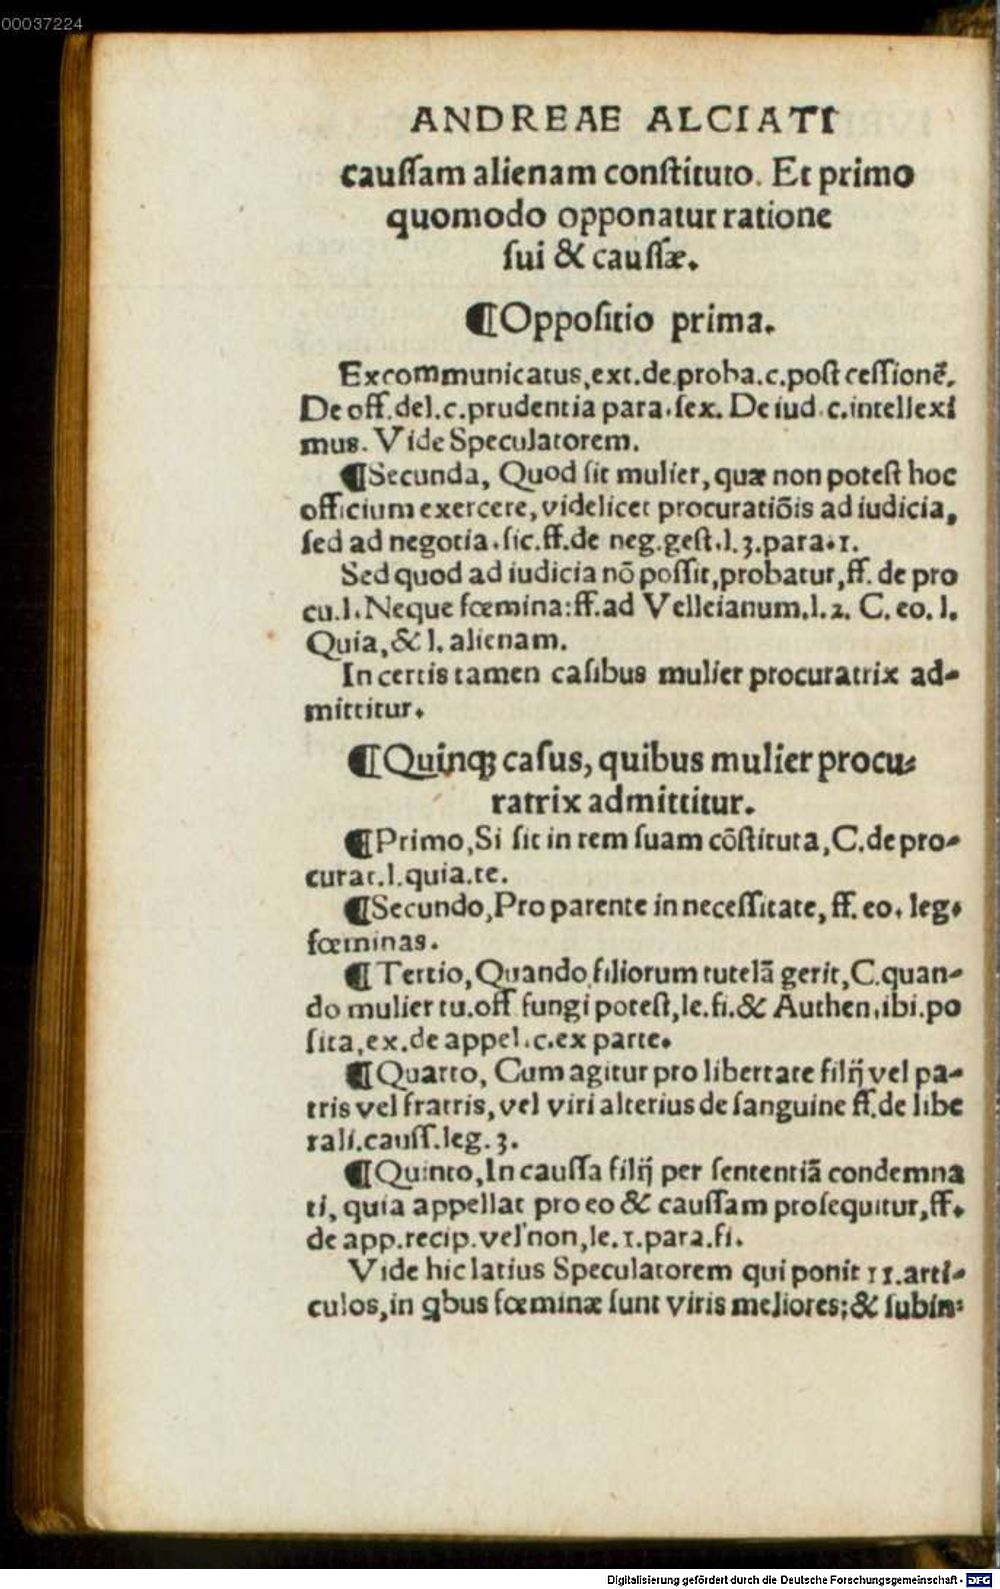 00037224
ANDREAE ALCIATI
cauſſam alienam conſtituto. Et primo
quomodo opponatur ratione
ſui & cauſſæ.
¶Oppoſitio prima.
Excommunicatus,ext.de.proba.c.poſt ceſſionē.
De off.del.c.prudentia para.ſex. De iud.c.intellexi
mus. Vide Speculatorem.
¶Secunda, Quod ſit mulier, quæ non poteſt hoc
officium exercere, videlicet procuratiōis ad iudicia,
ſed ad negotia.ſic.ff.de neg.geſt.l.3.para.1.
Sed quod ad iudicia nō poſſit,probatur,ff. de pro
cu.l.Neque fœmina:ff.ad Velleianum.l.2. C. eo. l.
Quia,& l. alienam.
In certis tamen caſibus mulier procuratrix ad-
mittitur.
¶Quinq; caſus, quibus mulier procu-
ratrix admittitur.
¶Primo,Si ſit in rem ſuam cōſtituta,C.de pro-
curat.l.quia.te.
¶Secundo,Pro parente in neceſſitate, ff. eo. leg.
fœminas.
¶Tertio,Quando filiorum tutelā gerit,C.quan-
do mulier tu.off fungi poteſt,le.fi.& Authen.ibi.po
ſita,ex.de appel.c.ex parte.
¶Quarto, Cum agitur pro libertate filij vel pa-
tris vel fratris, vel viri alterius de ſanguine ff.de libe
rali.cauſſ.leg.3.
¶Quinto,In cauſſa filij per ſententiā condemna
ti, quia appellat pro eo & cauſſam proſequitur,ff.
de app.recip.vel non,le.1.para.fi.
Vide hic latius Speculatorem qui ponit 11.arti-
culos,in qbus fœminæ ſunt viris meliores;& ſubin-
Digitalisierung gefördert durch die Deutsche Forschungsgemeinschaft - DFG